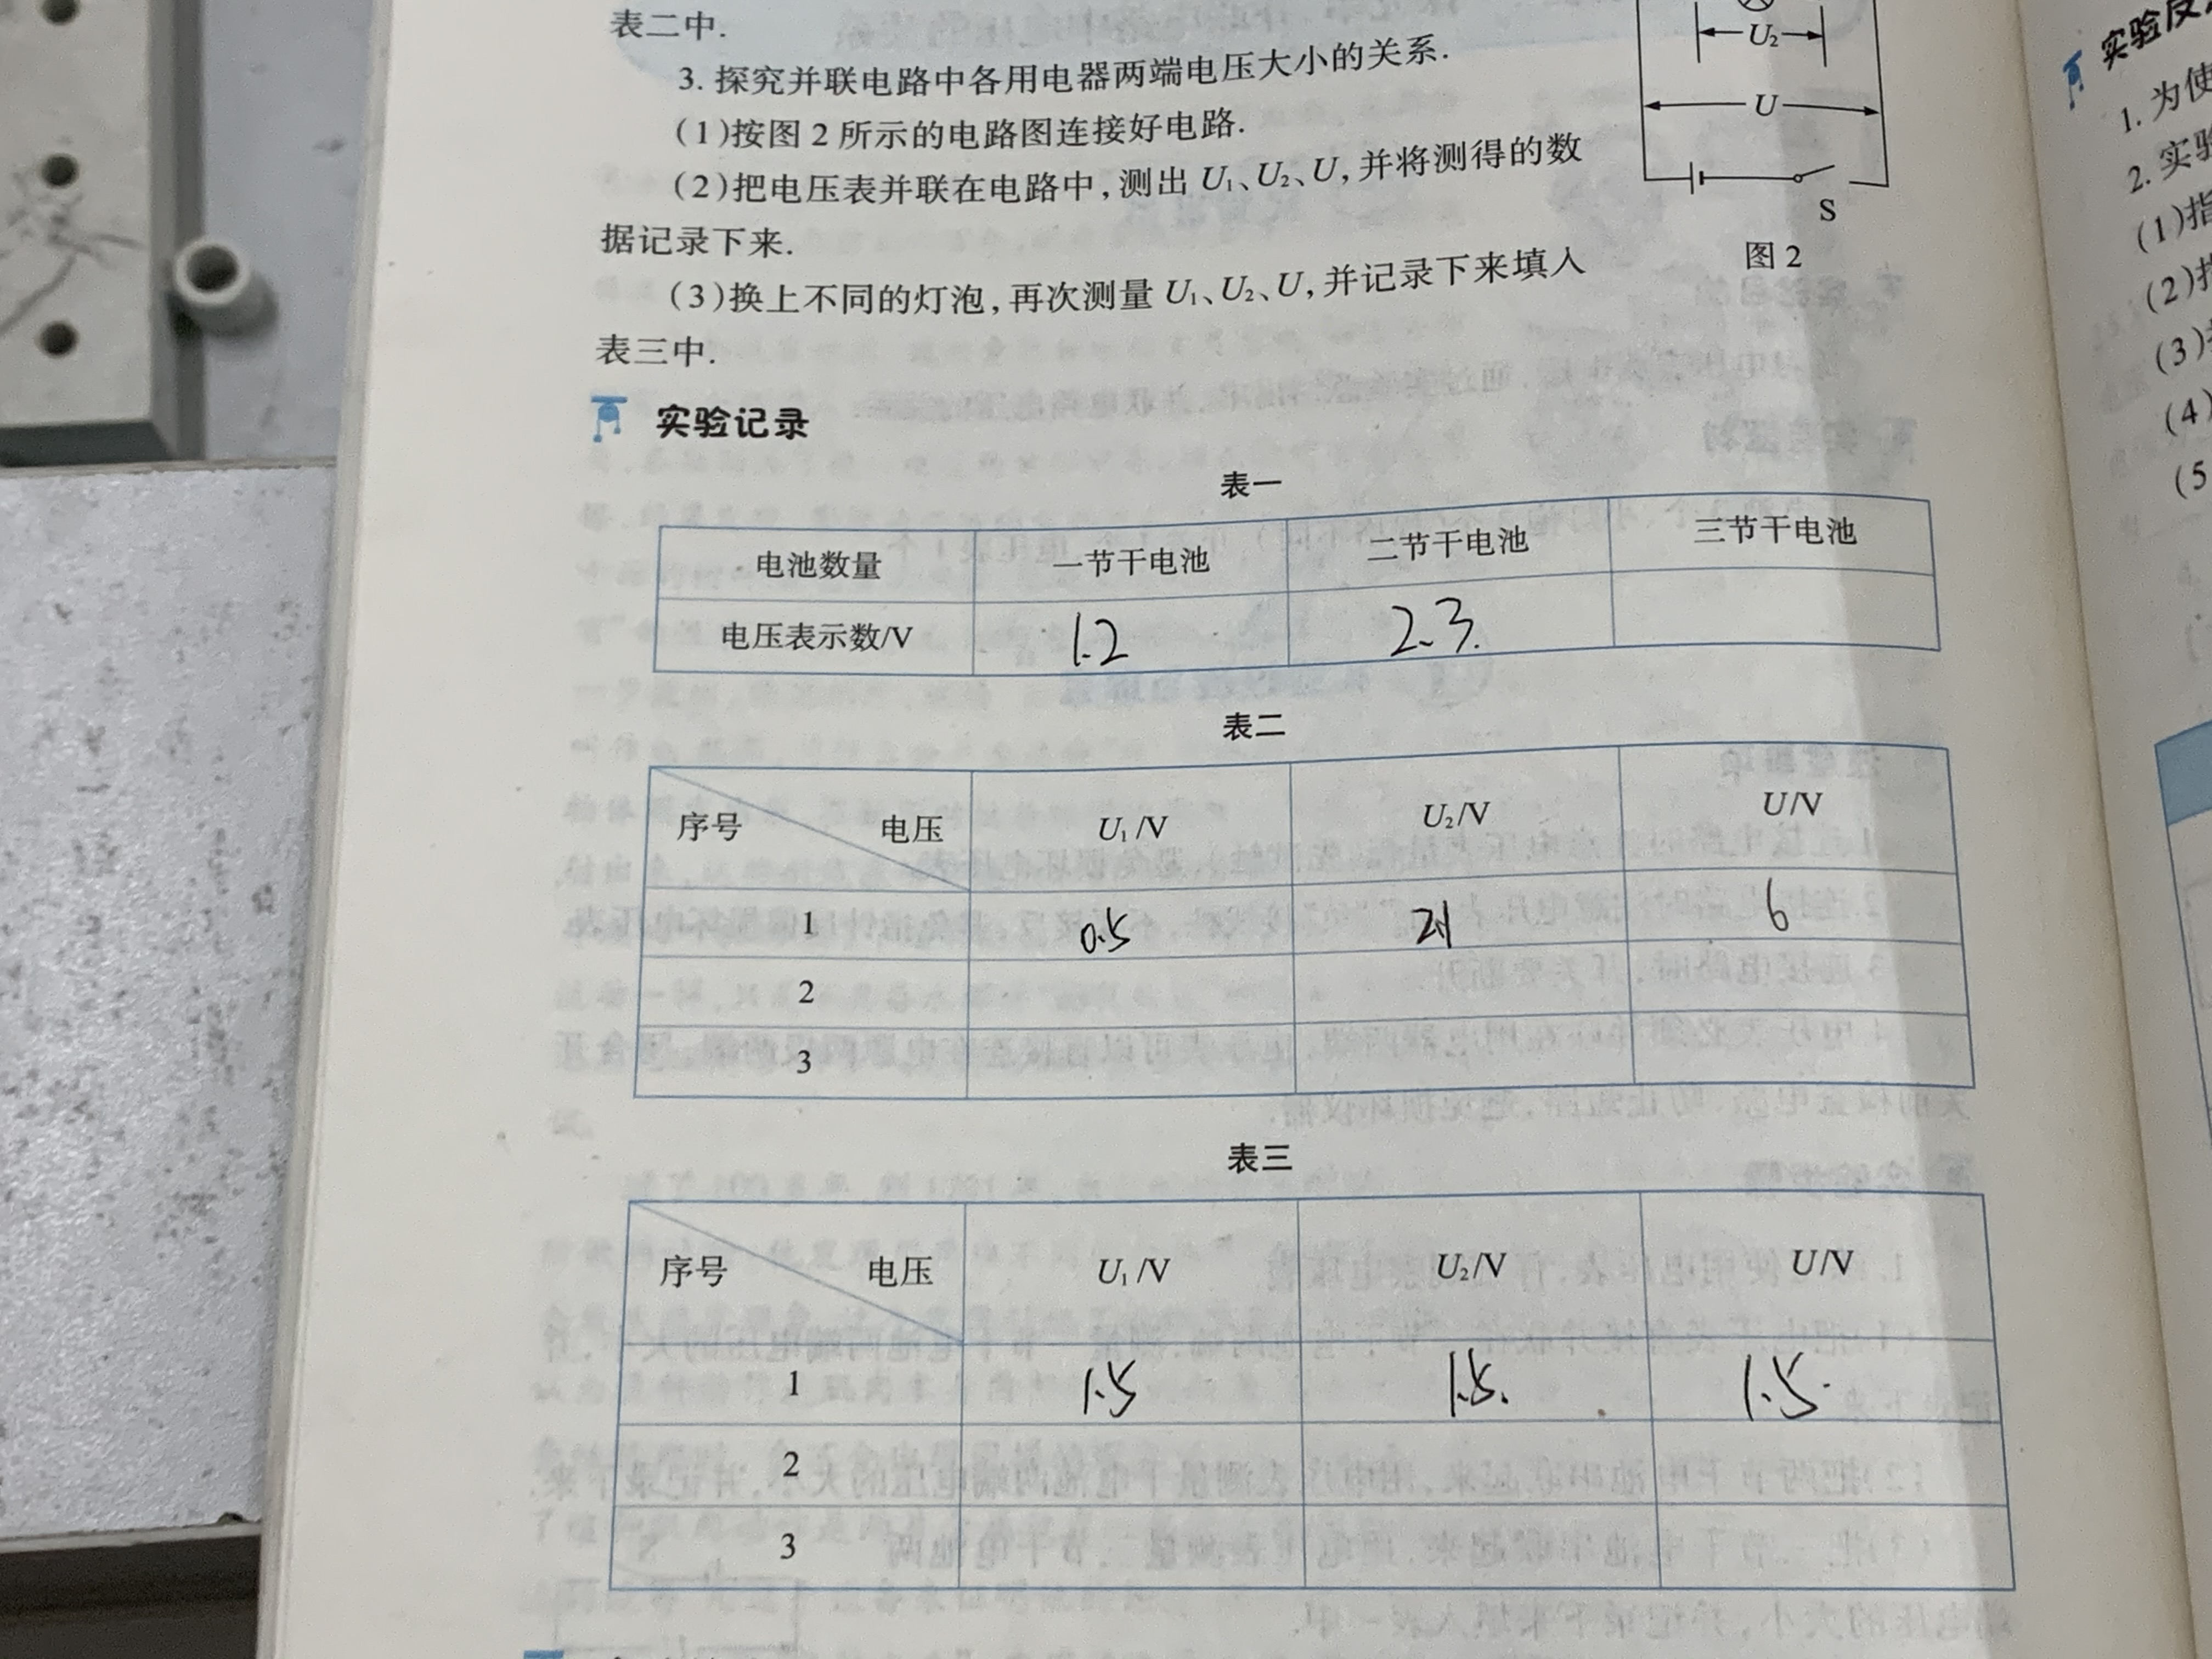 表二中.
3. 探究并联电路中各用电器两端电压大小的关系.
(1)按图 2 所示的电路图连接好电路.
(2)把电压表并联在电路中,测出 U₁、U₂、U,并将测得的数
据记录下来.
(3)换上不同的灯泡,再次测量 U₁、U₂、U,并记录下来填入
表三中.
U₂
U
S
图 2
实验记录
表一
电池数量 一节干电池 二节干电池 三节干电池
电压表示数/V 1.2 2.3
表二
序号 电压 U₁/V U₂/V U/V
1 0.5 6
2
3
表三
序号 电压 U₁/V U₂/V U/V
1 1.5 1.5. 1.5.
2
3
1. 为使
2. 实验
(1)指
(2)
(3)
(4)
(5